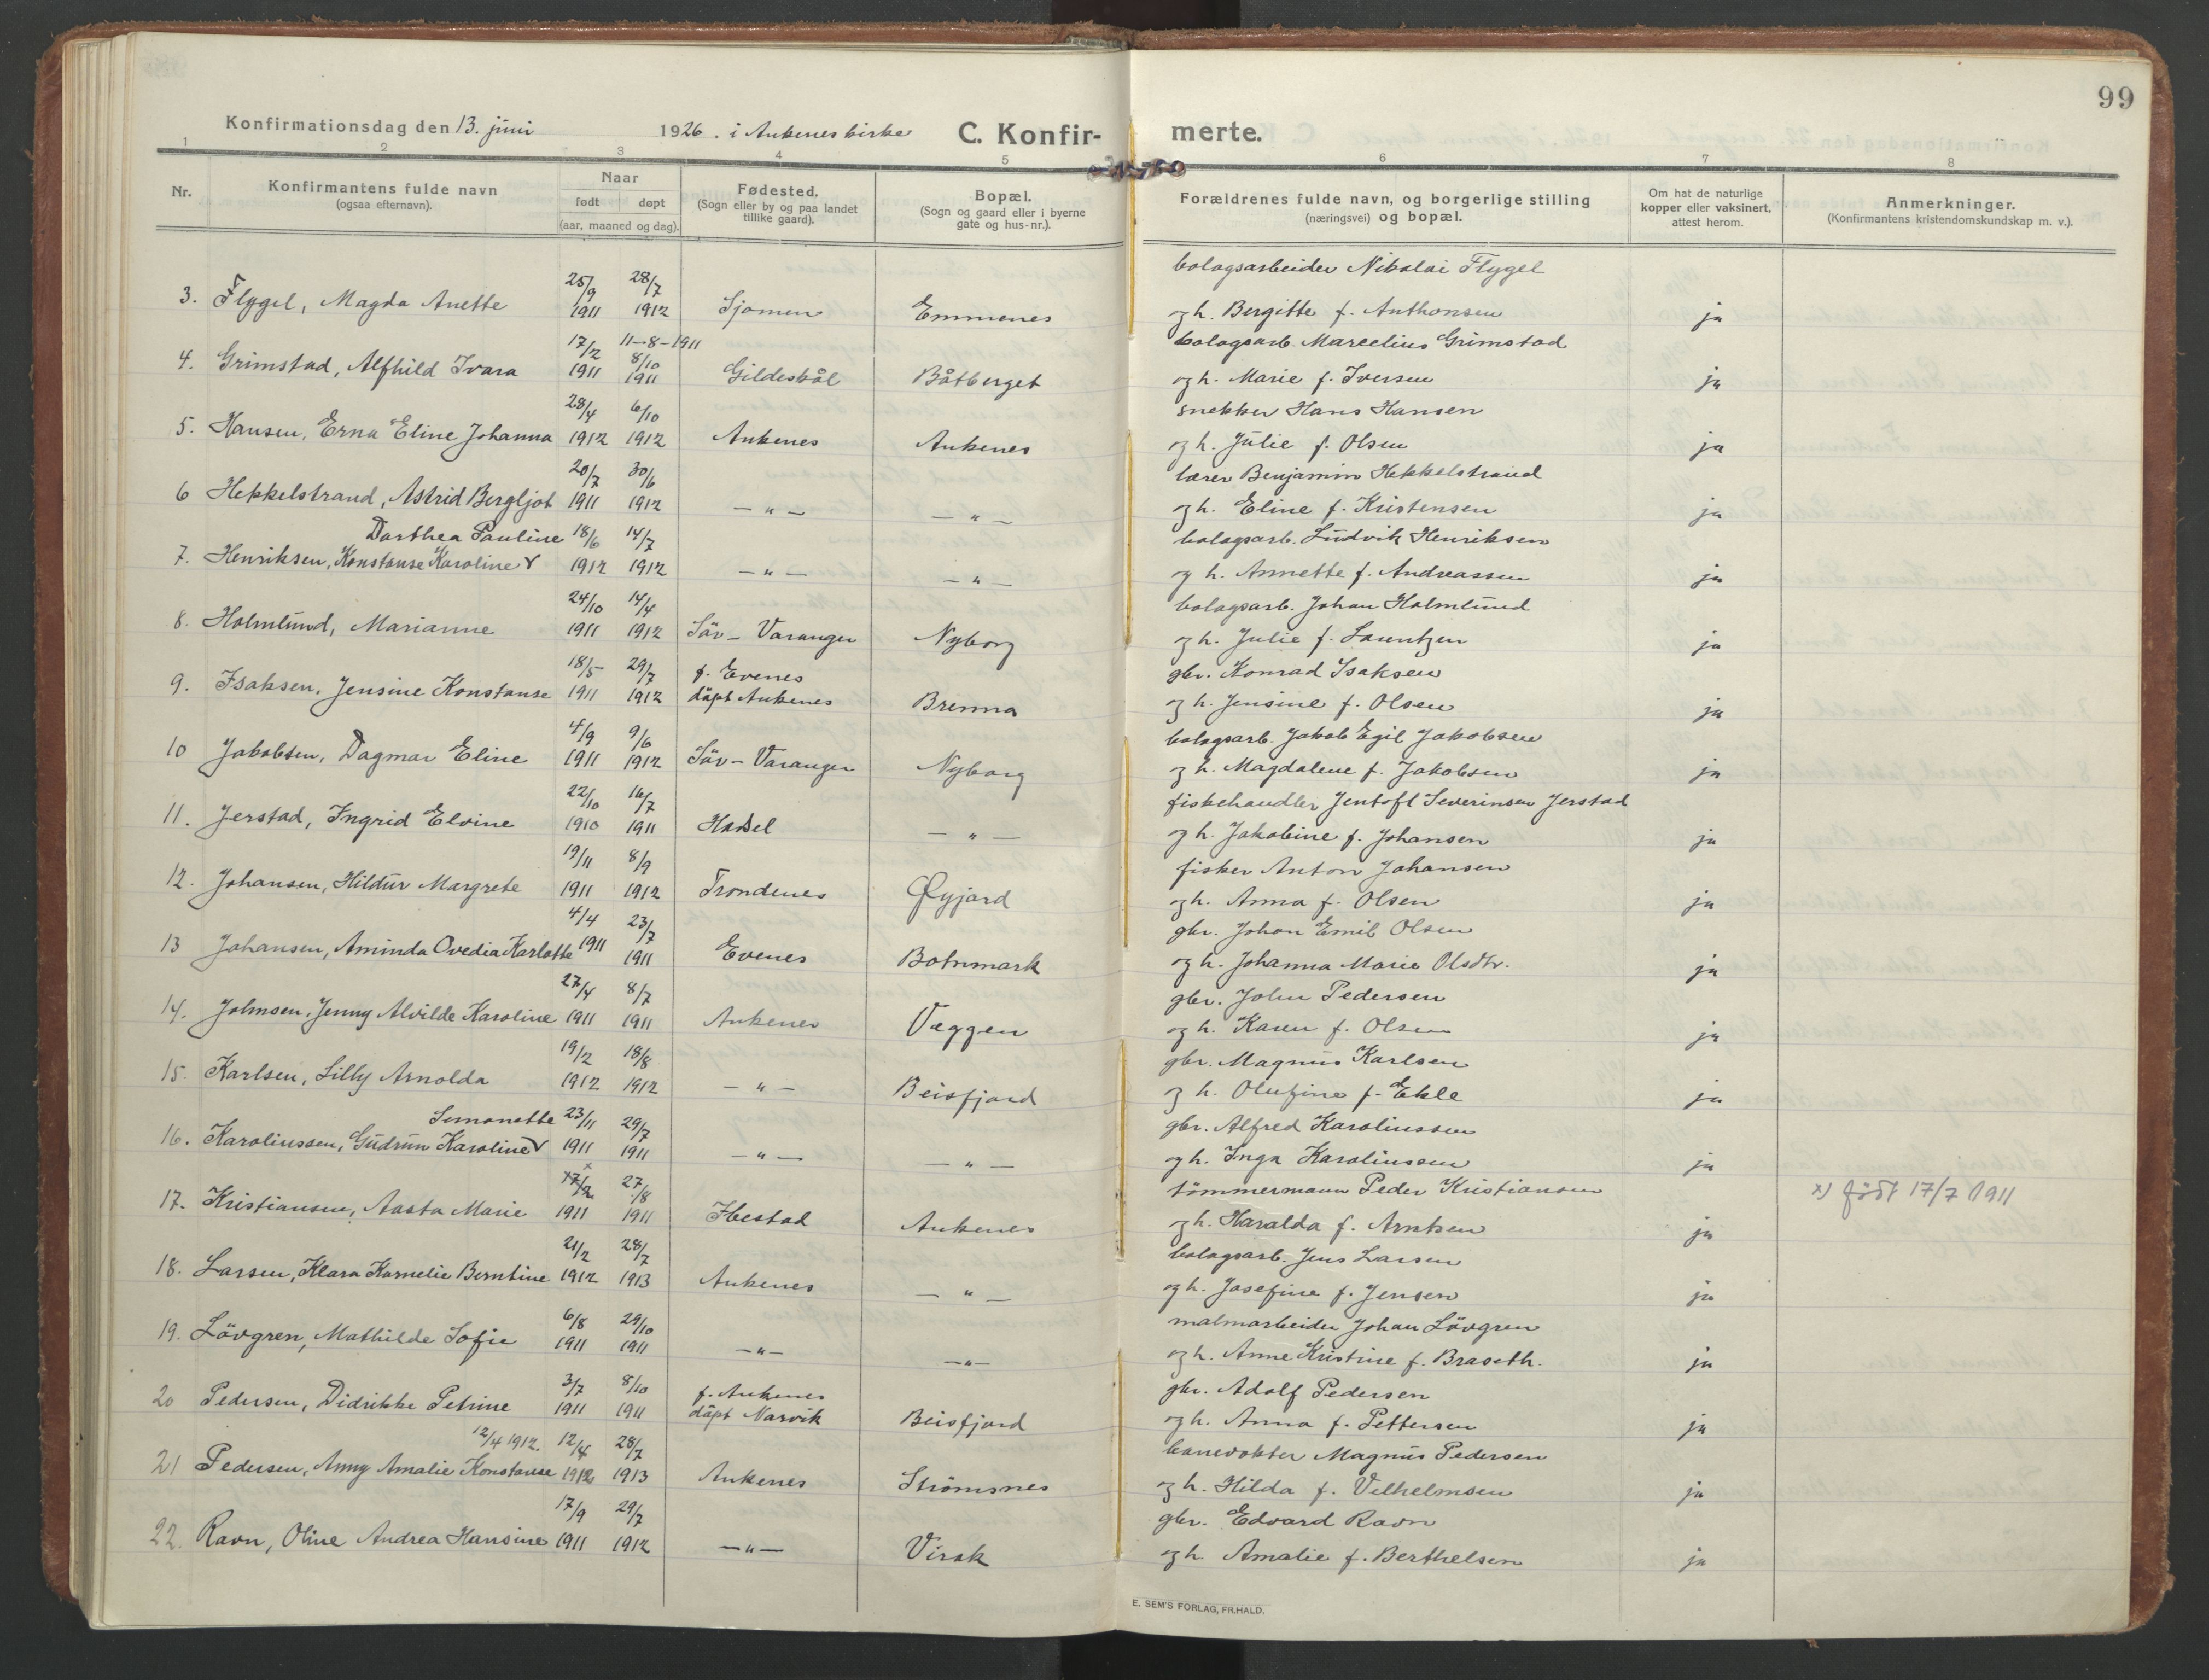 99
Konfirmationsdag den 13. juni 1926. i Ankenes kirke C. Konfirmerte.
1 2 3 4 5 6 7 8
Nr. Konfirmantens fulde navn (ogsaa efternavn). Naar født døpt (aar, maaned og dag). Fødested. (Sogn eller by og paa landet tillike gaard). Bopæl. (Sogn og gaard eller i byerne gate og hus-nr.). Forældrenes fulde navn, og borgerlige stilling (næringsvei) og bopæl. Om hat de naturlige kopper eller vaksinert, attest herom. Anmerkninger. (Konfirmantens kristendomskundskap m. v.).
25/9 28/7 bolagsarbeider Nikolai Flygel
3. Flygel, Magda Anette 1911 1912 Sjomen Emmenes og h. Bergitte f. Anthonsen ja
17/2 11-8-1911 bolagsarb. Marcelius Grimstad
4. Grimstad, Alfhild Ivara 1911 8/10 1911 Gildeskål Båtberget og h. Marie f. Iversen ja
28/4 6/10 snekker Hans Hansen
5. Hansen, Erna Eline Johanna 1912 1912 Ankenes Ankenes og h. Julie f. Olsen ja
20/7 30/6 lærer Benjamin Hekkelstrand
6 Hekkelstrand, Astrid Bergljot 1911 1912 — " — — " — og h. Eline f. Kristensen ja
Dorthea Pauline 18/6 14/7 bolagsarb. Ludvik Henriksen
7. Henriksen, Konstanse Karoline √ 1912 1912 — " — — " — og h. Annette f. Andreassen ja
24/10 14/4 bolagsarb. Johan Holmlund
8. Holmlund, Marianne 1911 1912 Sör-Varanger Nyborg og h. Julie f. Lauritzen ja
18/5 29/7 f. Evenes gbr. Konrad Isaksen
9. Isaksen, Jensine Konstanse 1911 1912 döpt Ankenes Brenna og h. Jensine f. Olsen ja
4/9 9/6 bolagsarb. Jakob Egil Jakobsen
10 Jakobsen, Dagmar Eline 1911 1912 Sör-Varanger Nyborg og h. Magdalene f. Jakobsen ja
22/10 16/7 fiskehandler Jentoft Severinsen Jerstad
11. Jerstad, Ingrid Elvine 1910 1911 Hadsel — " — og h. Jakobine f. Johansen ja
19/11 8/9 fisker Anton Johansen
12. Johansen, Hildur Margrete 1911 1912 Trondenes Øyjord og h. Anna f. Olsen ja
4/4 23/7 gbr. Johan Emil Olsen
13 Johansen, Aminda Ovedia Karlotte 1911 1911 Evenes Botnmark og h. Johanna Marie Olsdtr. ja
27/4 8/7 gbr. John Pedersen
14. Johnsen, Jenny Alvilde Karoline 1911 1911 Ankenes Væggen og h. Karen f. Olsen ja
19/2 18/8 gbr. Magnus Karlsen
15. Karlsen, Lilly Arnolda 1912 1912 — " — Beisfjord og h. Olufine f. Ekle ja
Simonette 23/11 29/7 gbr. Alfred Karoliussen
16. Karoliussen, Gudrun Karoline √ 1911 1911 — " — — " — og h. Inga Karoliussen ja
x 17/2 27/8 tömmermann Peder Kristiansen x) född 17/7 1911
17. Kristiansen, Aasta Marie 1911 1911 Ibestad Ankenes og h. Haralda f. Arntsen ja
21/2 28/7 bolagsarb. Jens Larsen
18. Larsen, Klara Kornelie Berntine 1912 1913 Ankenes — " — og h. Josefine f. Jensen ja
6/8 29/10 malmarbeider Johan Lövgren
19. Lövgren, Mathilde Sofie 1911 1911 — " — — " — og h. Anne Kristine f. Braseth. ja
3/7 8/10 f. Ankenes gbr. Adolf Pedersen
20 Pedersen, Didrikke Petrine 1911 1911 döpt Narvik Beisfjord og h. Anna f. Pettersen ja
12/4 1912. 12/4 28/7 banevokter Magnus Pedersen
21 Pedersen, Anny Amalie Konstanse 1912 1913 Ankenes Strömsnes og h. Hilda f. Vilhelmsen ja
17/9 29/7 gbr. Edvard Ravn
22. Ravn, Oline Andrea Hansine 1911 1912 — " — Virak og h. Amalie f. Berthelsen ja
E. SEM'S FORLAG, FR.HALD.